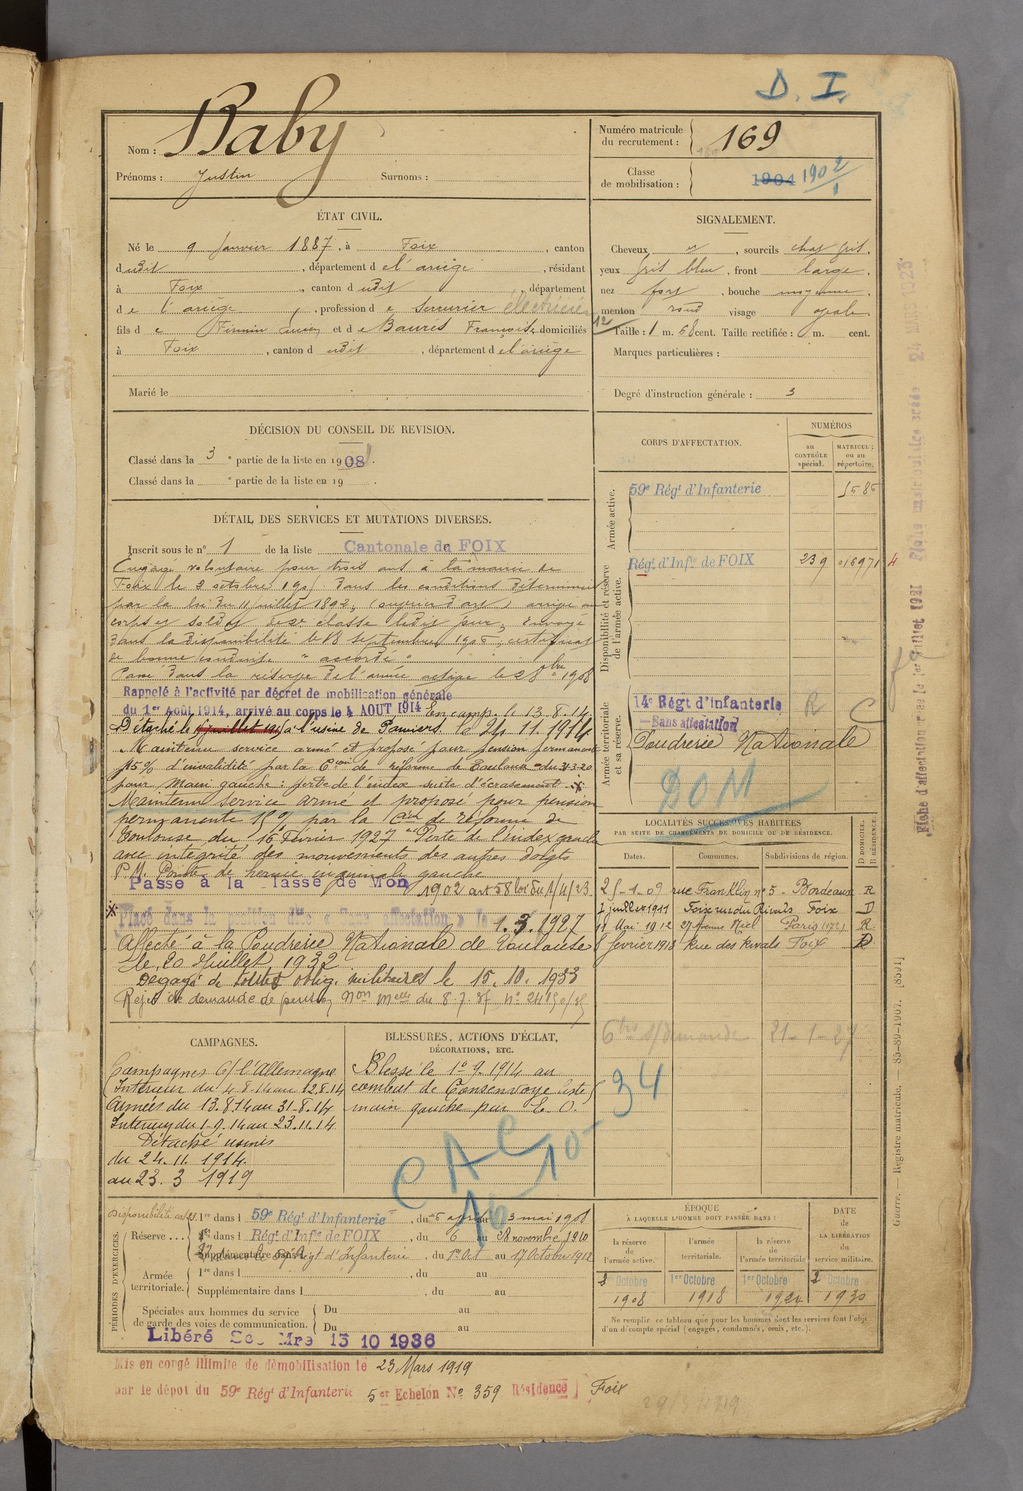 D. I.
Nom : Baby
Prénoms : Justin Surnoms :
Numéro matricule du recrutement : 169
Classe de mobilisation : 1904 1902/1
ÉTAT CIVIL.
Né le 9 Janvier 1887, à Foix, canton
dudit, département de l'ariège, résidant
à Foix, canton dudit, département
de l'ariège, profession de serrurier électricien
fils de Firmin et de Baures Françoise domiciliés
à Foix, canton dudit, département de l'ariège
Marié le
SIGNALEMENT.
Cheveux, sourcils chat gris.
yeux gris bleu, front large.
nez fort, bouche moyenne.
menton rond visage ovale
Taille : 1 m. 68 cent. Taille rectifiée : m. cent.
Marques particulières :
Degré d'instruction générale : 3
DÉCISION DU CONSEIL DE REVISION.
Classé dans la 3e partie de la liste en 1908.
Classé dans la e partie de la liste en 19
DÉTAIL DES SERVICES ET MUTATIONS DIVERSES.
Inscrit sous le n° 1 de la liste Cantonale de FOIX
Engagé volontaire pour trois ans à la mairie de
Foix le 3 octobre dans les conditions déterminées
par la loi du 11 juillet 1892, arrivé au
corps et soldat de 2e classe ledit jour, Envoyé
dans la disponibilité le septembre certificat
de bonne conduite "accordé"
Passé dans la réserve de l'armée active le 1908
Rappelé à l'activité par décret de mobilisation générale
du 1er Août 1914, arrivé au corps le 4 AOUT 1914 En camp. le 13.8.14
Détaché le à l'usine de Pamiers le 24 11 1914
Maintenu service armé et proposé pour pension permanente
15% d'invalidité par la Con de réforme de Toulouse du 31-3-20
pour main gauche : perte de l'index suite d'écrasement
Maintenu service armé et proposé pour pension
permanente 15% par la Con de réforme de
Toulouse du 16 Février 1927 Perte de l'index gauche
avec intégrité des mouvements des autres doigts
P.M. Pointe de hernie inguinale gauche
Passé à la classe de Mon 1902 art 58 loi du 1/4/23
Placé dans la position dite « Sans affectation » le 1.3.1927
Affecté à la Poudrerie Nationale de Toulouse
le 20 Juillet 1932
Dégagé de toutes oblig. militaires le 15.10.1933
Rejet de demande de pension
CORPS D'AFFECTATION.
NUMÉROS
au CONTRÔLE spécial.
MATRICULE ou au répertoire.
Armée active.
59e Régt d'Infanterie 1585
Disponibilité et réserve de l'armée active.
Régt d'Infie de FOIX 239
Armée territoriale et sa réserve.
14e Régt d'infanterie R C
—Sans affectation—
Poudrerie Nationale
DOM
LOCALITÉS SUCCESSIVES HABITÉES
PAR SUITE DE CHANGEMENTS DE DOMICILE OU DE RÉSIDENCE.
Dates. Communes. Subdivisions de région. D DOMICILE. R RÉSIDENCE.
25-1-09 rue Franklin n° 5 Bordeaux R
2 juillet 1911 Foix rue du Rivals Foix D
11 Mai 1912 27 avenue Niel Paris R
8 février 1913 Rue des Rivals Foix D
s/demande 21-1-27
CAMPAGNES.
Campagnes c/ l'Allemagne
Intérieur du 4.8.14 au 12.8.14
Armées du 13.8.14 au 31-8.14
Intérieur du 1-9.14 au 23.11.14
Détaché usines
du 24.11.1914
au 23.3 1919
BLESSURES, ACTIONS D'ÉCLAT, DÉCORATIONS, ETC.
Blessé le 1er 9.1914 au
combat de Consenvoye
main gauche par E. O.
CAC
16-10-34
PÉRIODES D'EXERCICES.
Réserve...
1re dans l 59e Régt d'Infanterie, du au 3 mai 1908
2e dans l Régt d'Infie de FOIX, du 6 au 28 novembre 1910
Supplémentaire Régt d'Infanterie, du 1er Oct au 17 Octobre 1912
Armée territoriale.
1re dans l , du au
Supplémentaire dans l , du au
Spéciales aux hommes du service de garde des voies de communication.
Du au
Du au
ÉPOQUE
À LAQUELLE L'HOMME DOIT PASSER DANS :
la réserve de l'armée active.
l'armée territoriale.
la réserve de l'armée territoriale
DATE de LA LIBÉRATION du service militaire.
2 Octobre 1908
1er Octobre 1918
1er Octobre
2 Octobre 1930
Ne remplir ce tableau que pour les hommes dont les services font l'objet d'un décompte spécial (engagés, condamnés, omis, etc.).
Libéré Sce Mre 13 10 1936
Mis en congé illimité de démobilisation le 23 Mars 1919
par le dépot du 59e Régt d'Infanterie 5er Echelon No 359 Résidence Foix
Guerre. — Registre matricule. — 85-89-1907. [8591]